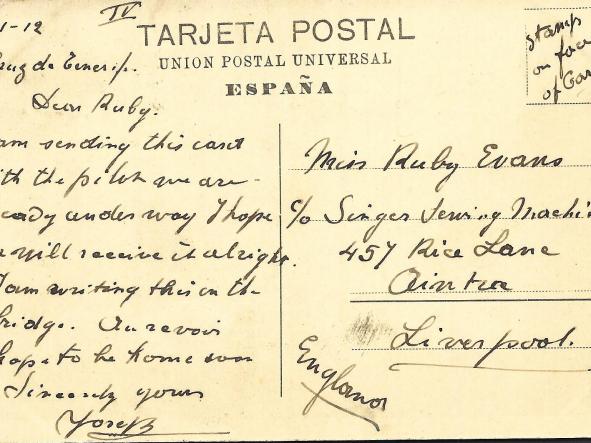 1-12
IV
TARJETA POSTAL
UNION POSTAL UNIVERSAL
ESPAÑA
Stamp
on face
of Car
ruz de Tenerif.
Dear Ruby.
am sending this card
ith the pilot we are
eady under way I hope
u will receive it alright.
I am writing this on the
bridge. Au revoir
hope to be home soon
Sincerely yours
Miss Ruby Evans
c/o Singer Sewing Machin
457 Rice Lane
Aintree
Liverpool.
England